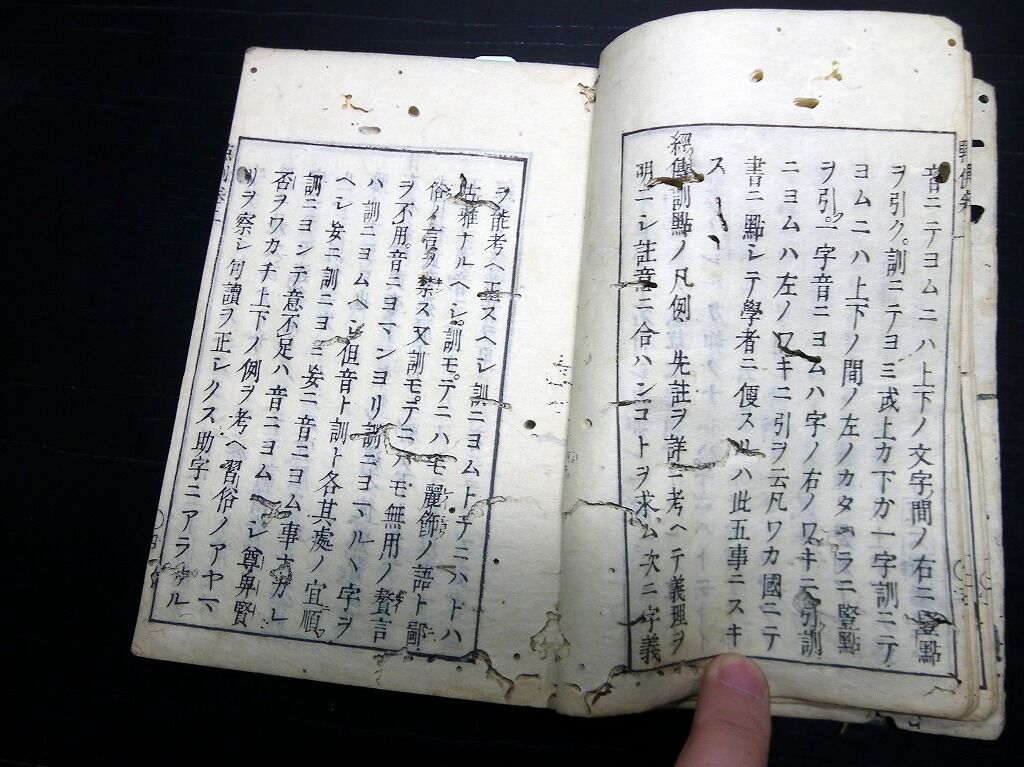 音ニテヨムニハ上下ノ文字間ノ右ニ竪點
ヲ引ク。訓ニテヨミ或上カ下カ一字訓ニテ
ヨムニハ上下ノ間ノ左ノカタハラニ竪點
ヲ引。一字音ニヨムハ字ノ右ノワキニ引訓
ニヨムハ左ノワキニ引ヲ云凡ワカ國ニテ
書ニ點シテ學者ニ便スルハ此五事ニスキ
ス
經傳訓點ノ凡例 先註ヲ詳ニ考ヘテ義理ヲ
明ニシ註意ニ合ハンコトヲ求ム次ニ字義
ヲ能考ヘ正スヘシ訓ニヨムトテニハトハ
古雅ナルヘシ。訓モテニハモ麗飾ノ語ト鄙
俗ノ言ヲ禁ス又訓モテニハモ無用ノ贅言
ヲ不用。音ニヨマンヨリ訓ニヨマルヽ字ヲ
ハ訓ニヨムヘシ但音ト訓ト各其處ノ宜順
ヘシ妄ニ訓ニヨミ妄ニ音ニヨム事ナカレ
訓ニヨンテ意不足ハ音ニヨムヘシ尊卑賢
否ヲワカチ上下ノ例ヲ考ヘ習俗ノアヤマ
リヲ察シ句讀ヲ正シクス助字ニアラサル